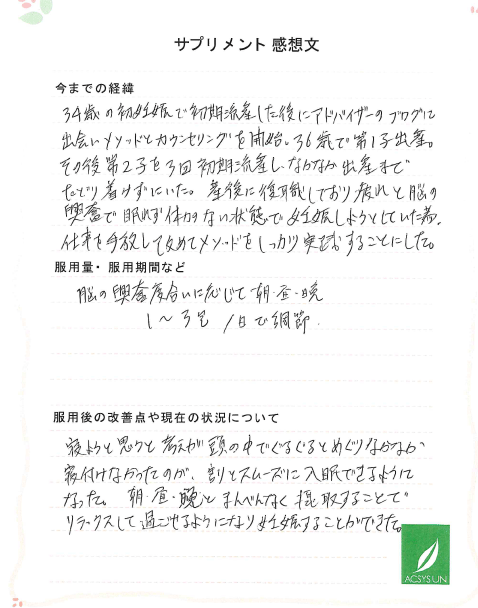 サプリメント 感想文
今までの経緯
34歳の初妊娠で初期流産した後にアドバイザーのブログに
出会いメソッドとカウンセリングを開始。36歳で第1子出産。
その後第2子を3回初期流産し、なかなか出産まで
たどり着けずにいた。産後に復職しており疲れと脳の
興奮で眠れず体力のない状態で妊娠しようとしていた為、
仕事を手放して改めてメソッドをしっかり実践することにした。
服用量・服用期間など
脳の興奮度合いに応じて朝・昼・晩
1〜3包 /日で調節.
服用後の改善点や現在の状況について
寝ようと思うと考えが頭の中でぐるぐるとめぐりなかなか
寝付けなかったのが、割とスムーズに入眠できるように
なった。朝・昼・晩とまんべんなく摂取することで
リラックスして過ごせるようになり妊娠することができた。
ACSYSUN